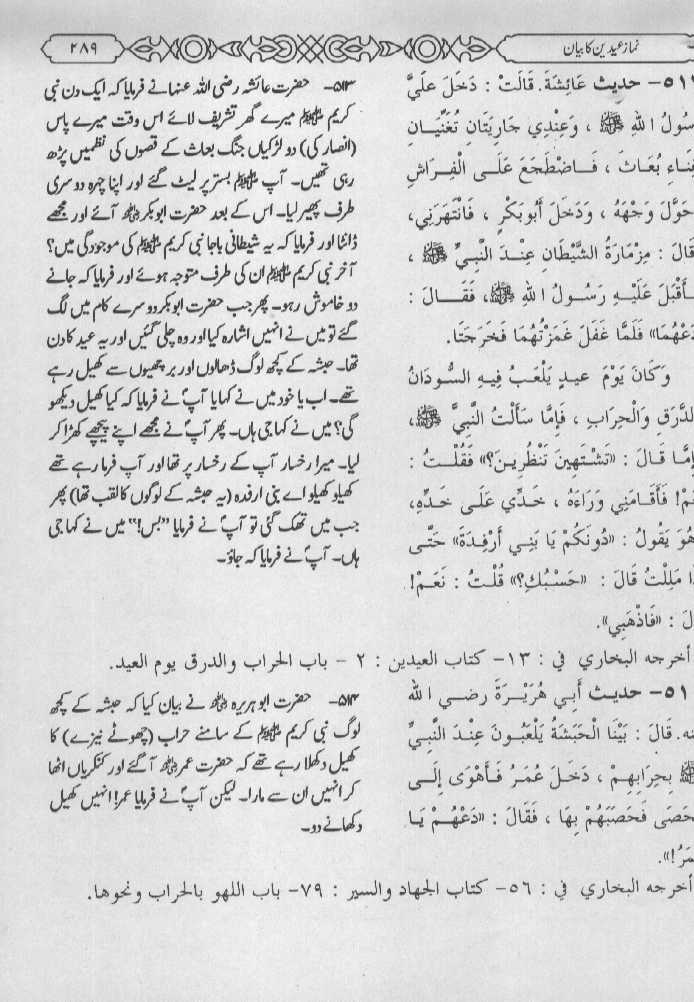 نماز عیدین کا بیان
۲۸۹
حديث عَائِشَةَ. قَالَتْ : دَخَلَ عَلَيَّ
اللهِ ﷺ ، وَعِنْدِي جَارِيَتَانِ تُغَنِّيَانِ
بُعَاثَ ، فَاضْطَجَعَ عَلَى الْفِرَاشِ
وَجْهَهُ ، وَدَخَلَ أَبُوبَكْرٍ ، فَانْتَهَرَنِي،
مِزْمَارَةُ الشَّيْطَانِ عِنْدَ النَّبِيِّ ﷺ ،
عَلَيْهِ رَسُولُ اللهِ ﷺ، فَقَالَ :
فَلَمَّا غَفَلَ غَمَزْتُهُمَا فَخَرَجَتَا.
وَكَانَ يَوْمَ عيدٍ يَلْعَبُ فِيهِ السُّودَانُ
وَالْحِرَابِ ، فَإِمَّا سَأَلْتُ النَّبِيَّ ﷺ ،
قَالَ : «تَشْتَهِينَ تَنْظُرِينَ؟» فَقُلْتُ :
فَأَقَامَنِي وَرَاءَهُ ، خَدِّي عَلَى خَدِّهِ،
يَقُولُ : «دُونَكُمْ يَا بَنِي أَرْفِدَةَ» حَتَّى
مَلِلْتُ قَالَ : «حَسْبُكِ؟» قُلْتُ : نَعَمْ!
: «فَاذْهَبِي».
۵۱۳- حضرت عائشہ رضی اللہ عنہا نے فرمایا کہ ایک دن نبی
کریم ﷺ میرے گھر تشریف لائے اس وقت میرے پاس
(انصار کی) دو لڑکیاں جنگ بعاث کے قصوں کی نظمیں پڑھ
رہی تھیں۔ آپ ﷺ بستر پر لیٹ گئے اور اپنا چہرہ دوسری
طرف پھیر لیا۔ اس کے بعد حضرت ابوبکرؓ آئے اور مجھے
ڈانٹا اور فرمایا کہ یہ شیطانی باجا نبی کریم ﷺ کی موجودگی میں؟
آخر نبی کریم ﷺ ان کی طرف متوجہ ہوئے اور فرمایا کہ جانے
دو خاموش رہو۔ پھر جب حضرت ابوبکر دوسرے کام میں لگ
گئے تو میں نے انہیں اشارہ کیا اور وہ چلی گئیں اور یہ عید کا دن
تھا۔ حبشہ کے کچھ لوگ ڈھالوں اور برچھیوں سے کھیل رہے
تھے۔ اب یا خود میں نے کہا یا آپؐ نے فرمایا کہ کیا کھیل دیکھو
گی؟ میں نے کہا جی ہاں۔ پھر آپؐ نے مجھے اپنے پیچھے کھڑا کر
لیا۔ میرا رخسار آپ کے رخسار پر تھا اور آپ فرما رہے تھے
کھیلو کھیلو اے بنی ارفدہ (یہ حبشہ کے لوگوں کا لقب تھا) پھر
جب میں تھک گئی تو آپؐ نے فرمایا ”بس!“ میں نے کہا جی
ہاں۔ آپؐ نے فرمایا کہ جاؤ۔
أخرجه البخاري في : ۱۳- كتاب العيدين : ۲ - باب الحراب والدرق يوم العيد.
حديث أَبِي هُرَيْرَةَ رضي الله
قَالَ : بَيْنَا الْحَبَشَةُ يَلْعَبُونَ عِنْدَ النَّبِيِّ
بِحِرَابِهِمْ ، دَخَلَ عُمَرُ فَأَهْوَى إِلَى
فَحَصَبَهُمْ بِهَا ، فَقَالَ : «دَعْهُمْ يَا
۵۱۴- حضرت ابو ہریرہؓ نے بیان کیا کہ حبشہ کے کچھ
لوگ نبی کریم ﷺ کے سامنے حراب (چھوٹے نیزے) کا
کھیل دکھلا رہے تھے کہ حضرت عمرؓ آ گئے اور کنکریاں اٹھا
کر انہیں ان سے مارا۔ لیکن آپؐ نے فرمایا عمر! انہیں کھیل
دکھانے دو۔
أخرجه البخاري في : ۵۶- كتاب الجهاد والسير : ۷۹- باب اللهو بالحراب ونحوها.